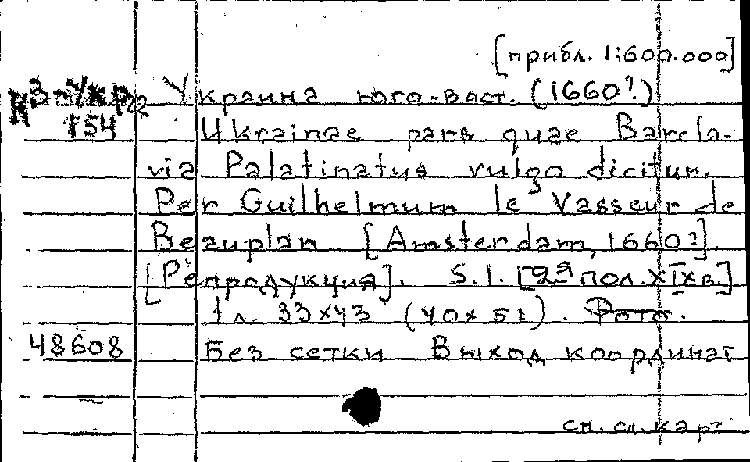 [прибл. 1:600.000]
К 3-Укр Украина юго-вост. (1660?)
154 Ukrainae pars quae Barcla-
via Palatinatus vulgo dicitur.
Per Guilhelmum le Vasseur de
Beauplan [Amsterdam, 1660?].
[Репродукция]. S.l. [2я пол. XIX в.]
1 л. 33x43 (40x51). Фото.
48608 Без сетки Выход координат
см. сл. карт.